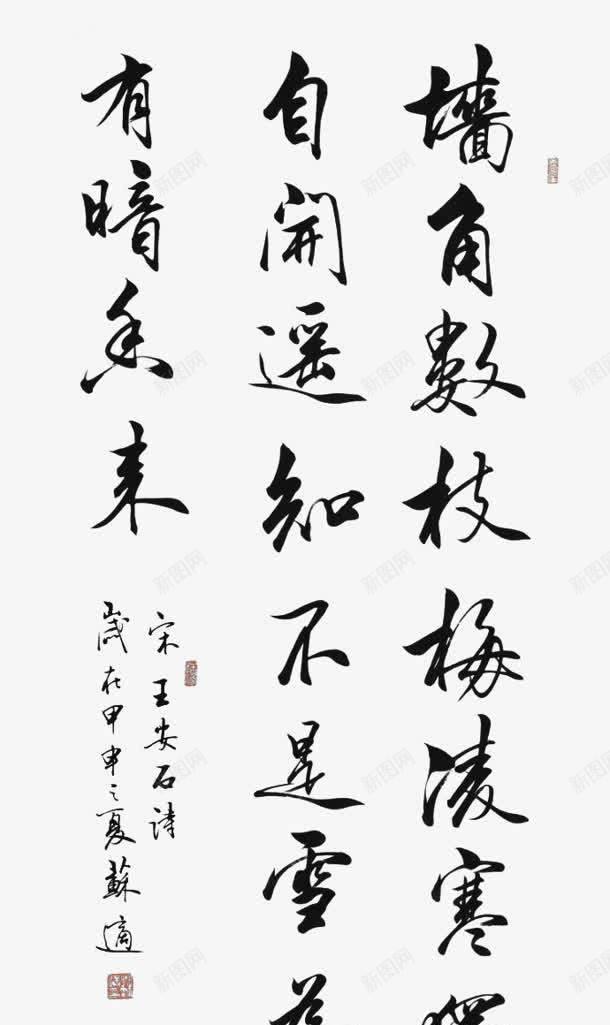 墻角數枝梅凌寒
自開遥知不是雪
有暗香来
宋王安石詩
歲在甲申之夏蘇適
新图网